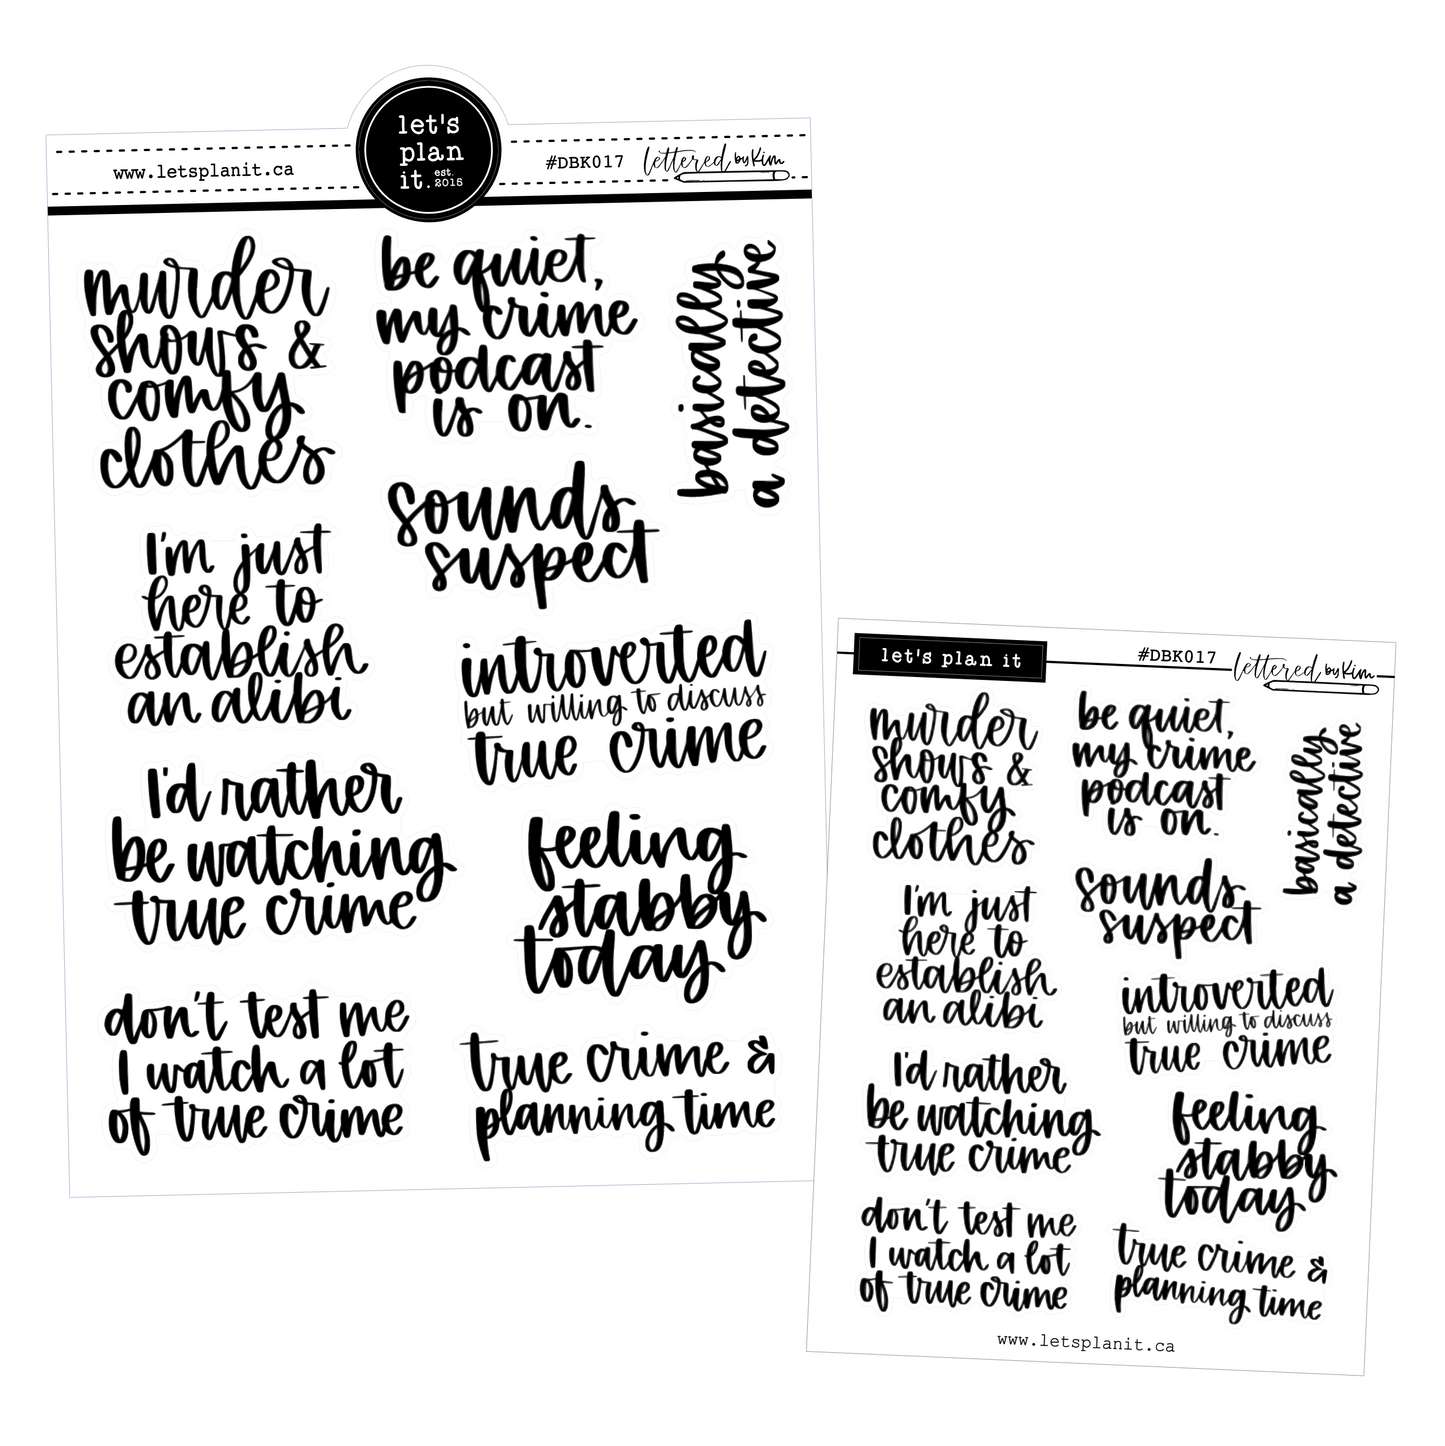 let's
plan
it. est. 2015
www.letsplanit.ca
#DBK017
lettered by Kim
murder
shows &
comfy
clothes
be quiet,
my crime
podcast
is on.
basically
a detective
sounds
suspect
I'm just
here to
establish
an alibi
introverted
but willing to discuss
true crime
I'd rather
be watching
true crime
feeling
stabby
today
don't test me
I watch a lot
of true crime
true crime &
planning time
let's plan it
#DBK017
lettered by Kim
murder
shows &
comfy
clothes
be quiet,
my crime
podcast
is on.
basically
a detective
sounds
suspect
I'm just
here to
establish
an alibi
introverted
but willing to discuss
true crime
I'd rather
be watching
true crime
feeling
stabby
today
don't test me
I watch a lot
of true crime
true crime &
planning time
www.letsplanit.ca